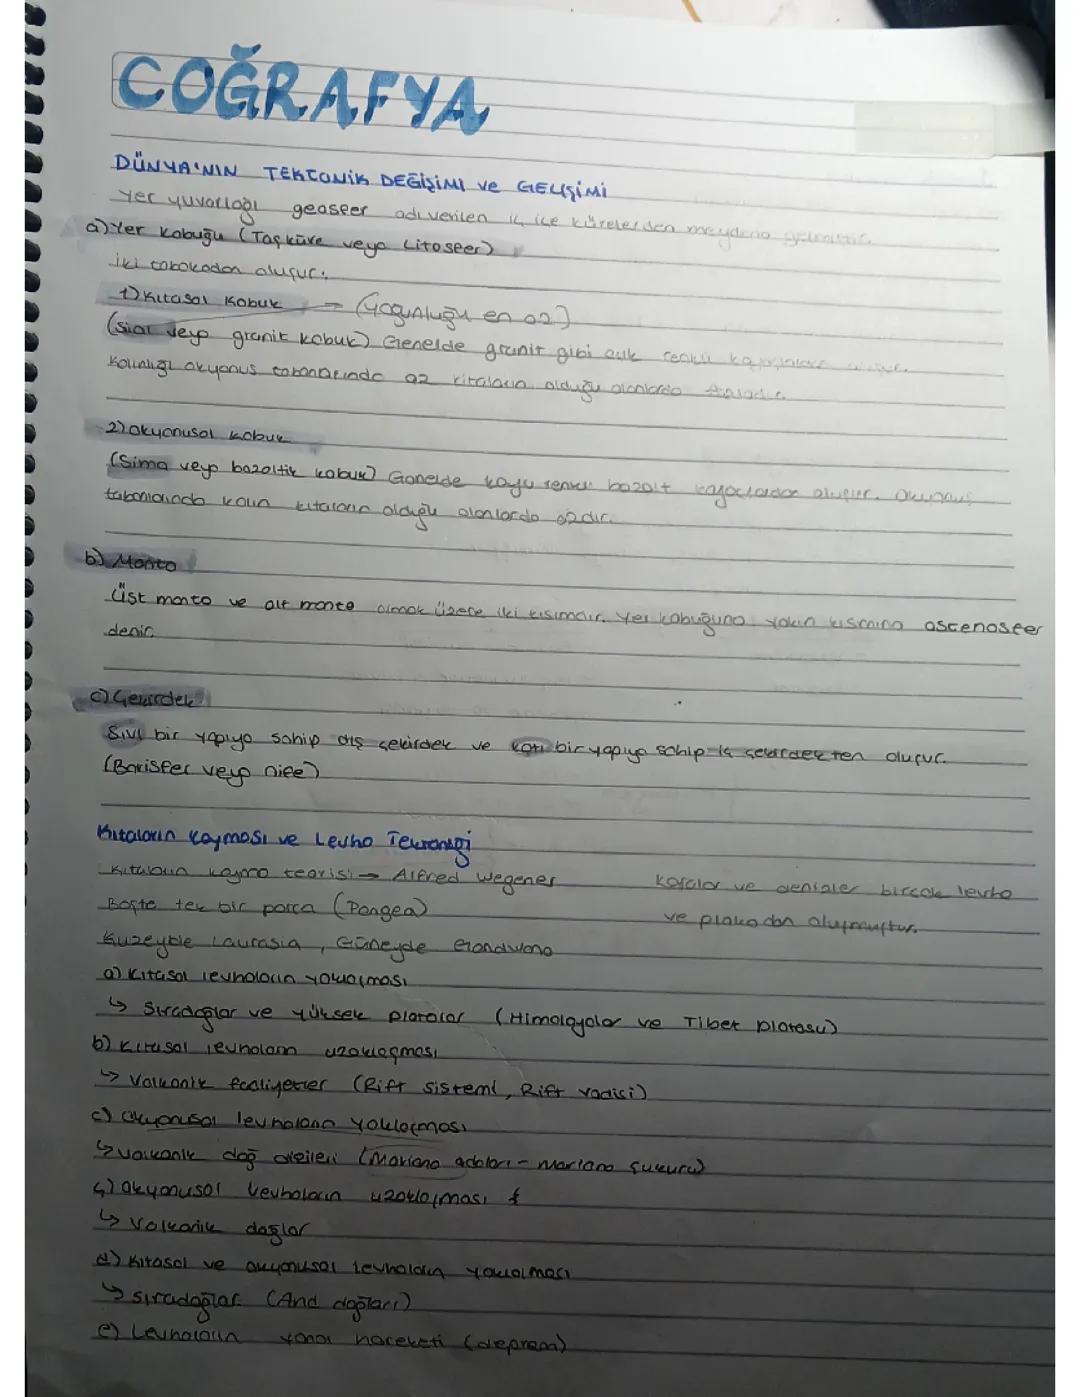 COĞRAFYA
DÜNYA'NIN TEKTONİK DEĞİŞİMİ ve GELİŞİMİ
Yer yuvarlağı geosfer adı verilen iç içe kürelerden meydana gelmiştir.
a) Yer Kabuğu (Taşküre veya Litosfer)
İki tabakadan oluşur.
1) Kıtasal Kabuk → (Yoğunluğu en az)
(Sial veya granit kabuk) Genelde granit gibi açık renkli
Kalınlığı okyanus tabanlarında az kıtaların olduğu alanlarda
2) Okyanusal Kabuk
(Sima veya bazaltik kabuk) Genelde koyu renkli bazalt kayaçlardan oluşur. Okyanus
tabanlarında kalın kıtaların olduğu alanlarda azdır.
b) Manto
Üst manto ve alt manto olmak üzere iki kısımdır. Yer kabuğuna yakın kısmına astenosfer
denir.
c) Çekirdek
Sıvı bir yapıya sahip dış çekirdek ve katı bir yapıya sahip iç çekirdekten oluşur.
(Barisfer veya nife)
Kıtaların Kayması ve Levha Tektoniği
Kıtaların kayma teorisi → Alfred Wegener
Karalar ve denizler birçok levha
Başta tek bir parça (Pangea)
ve plakadan oluşmuştur.
Kuzeyde Laurasia, Güneyde Gondwana
a) Kıtasal levhaların yaklaşması
↳ Sıradağlar ve yüksek platolar (Himalayalar ve Tibet platosu)
b) Kıtasal levhaların uzaklaşması
↳ Volkanik faaliyetler (Rift sistemi, Rift vadisi)
c) Okyanusal levhaların yaklaşması
↳ Volkanik dağ dizileri (Mariana adaları - Mariana çukuru)
ç) Okyanusal levhaların uzaklaşması
↳ Volkanik dağlar
d) Kıtasal ve okyanusal levhaların yaklaşması
↳ Sıradağlar (And dağları)
e) Levhaların yanal hareketi (deprem)